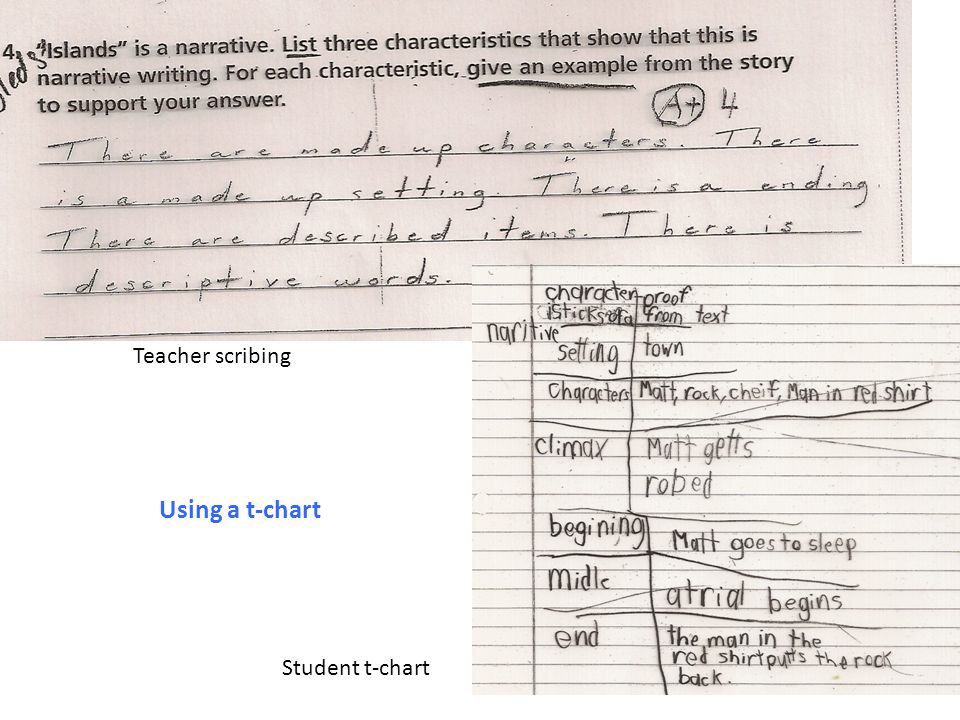 4. "Islands" is a narrative. List three characteristics that show that this is
narrative writing. For each characteristic, give an example from the story
to support your answer.
A+ 4
There are made up characters. There
is a made up setting. There is a ending.
There are described items. There is
descriptive words.
Teacher scribing
Using a t-chart
Student t-chart
character- proof
isticks of a from text
naritive
setting town
characters Matt, rock, cheif, Man in red shirt
climax Matt getts
robed
begining Matt goes to sleep
midle atrial begins
end the man in the
red shirt putts the rock
back.